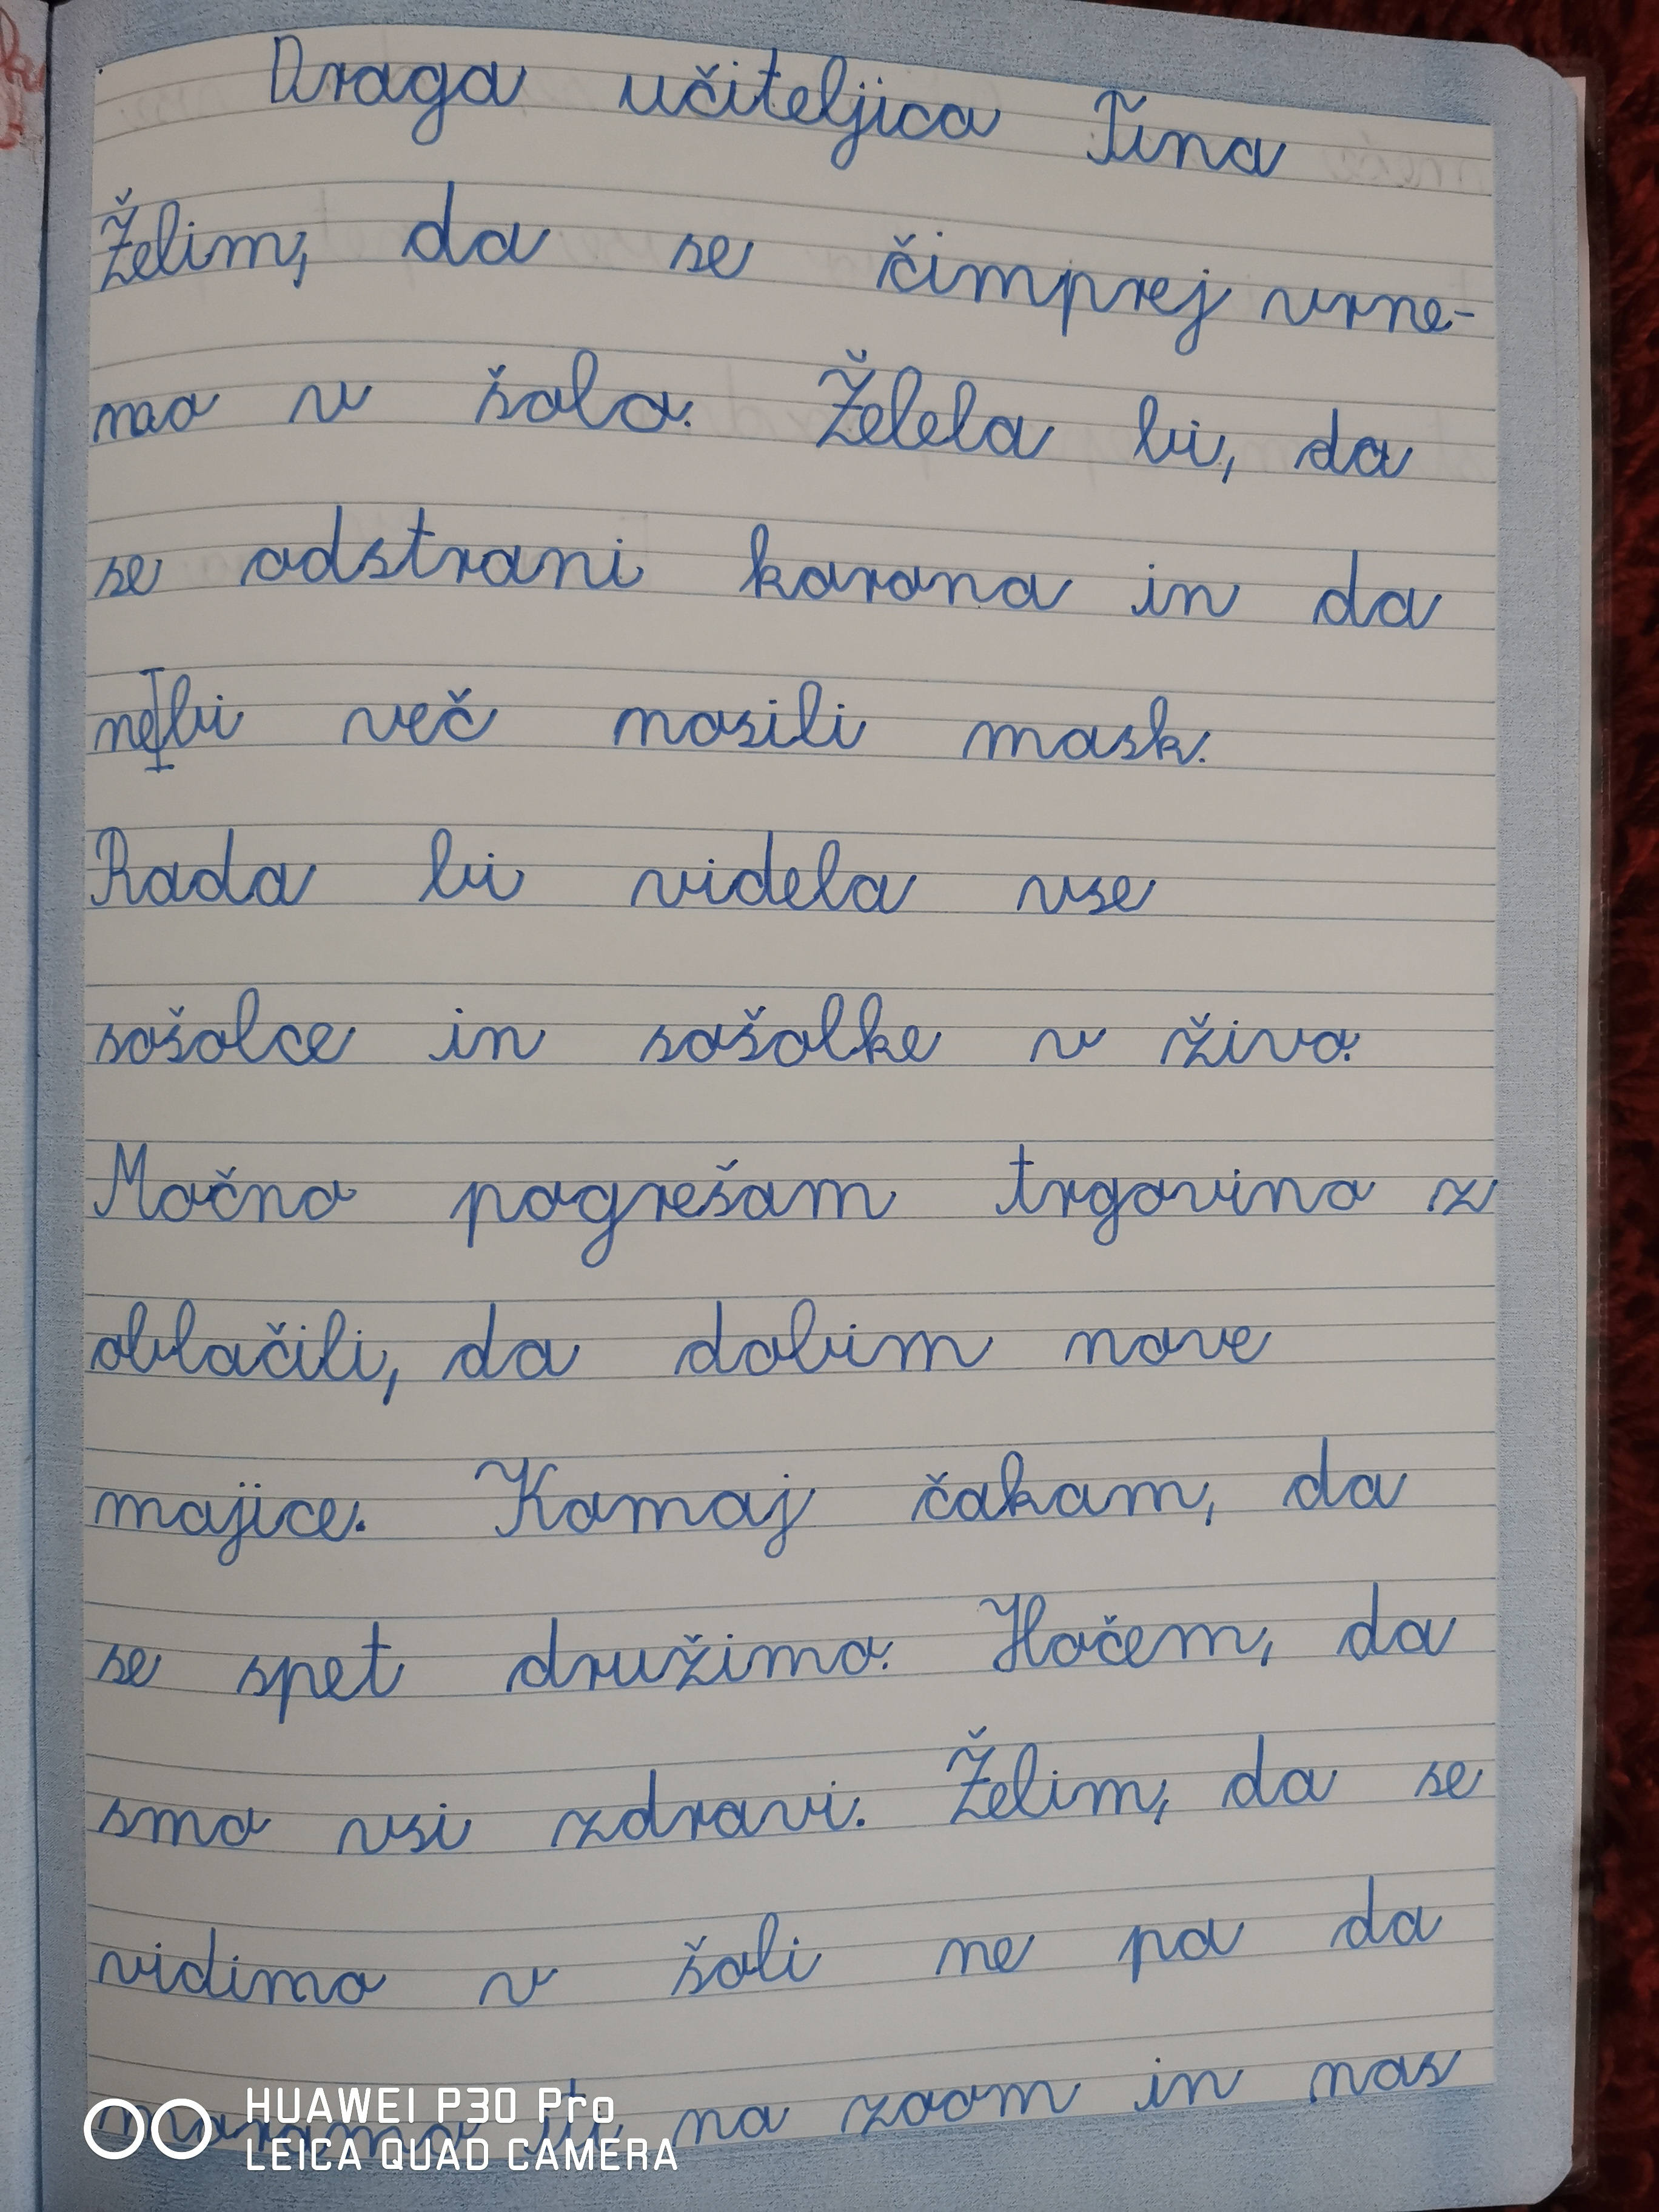 Draga učiteljica Tina
Želim, da se čimprej vrne-
mo v šolo. Želela bi, da
se odstrani korona in da
ne bi več nosili mask.
Rada bi videla vse
sošolce in sošolke v živo.
Močno pogrešam trgovino z
oblačili, da dobim nove
majice. Komaj čakam, da
se spet družimo. Hočem, da
smo vsi zdravi. Želim, da se
vidimo v šoli ne pa da
moramo iti na zoom in nas
HUAWEI P30 Pro
LEICA QUAD CAMERA